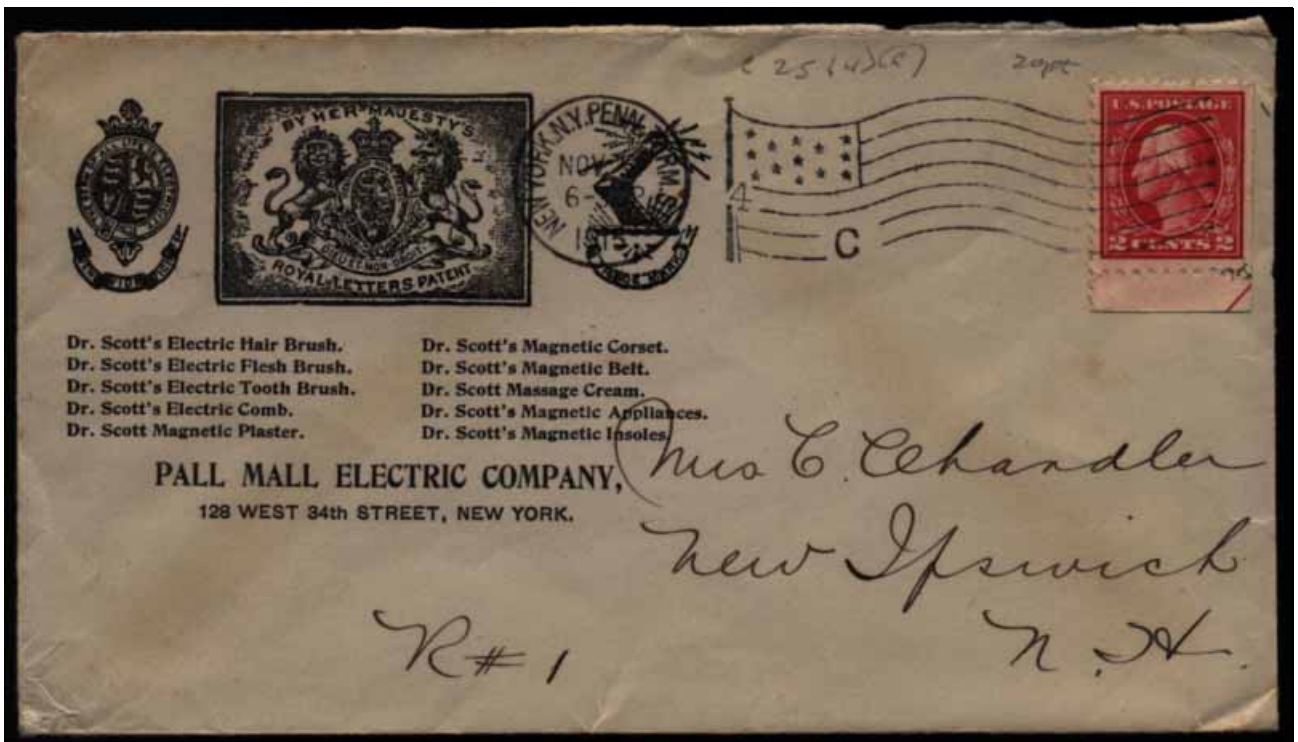 25 (4)(c)
U.S. POSTAGE
2 CENTS 2
BY HER MAJESTY'S
DIEU ET MON DROIT
ROYAL LETTERS PATENT
NEW YORK, N.Y. PENN.
NOV
6-
191
4
C
Dr. Scott's Electric Hair Brush.
Dr. Scott's Electric Flesh Brush.
Dr. Scott's Electric Tooth Brush.
Dr. Scott's Electric Comb.
Dr. Scott Magnetic Plaster.
Dr. Scott's Magnetic Corset.
Dr. Scott's Magnetic Belt.
Dr. Scott Massage Cream.
Dr. Scott's Magnetic Appliances.
Dr. Scott's Magnetic Insoles.
PALL MALL ELECTRIC COMPANY,
128 WEST 34th STREET, NEW YORK.
Mrs C. Chandler
New Ipswich
N. H.
R#1